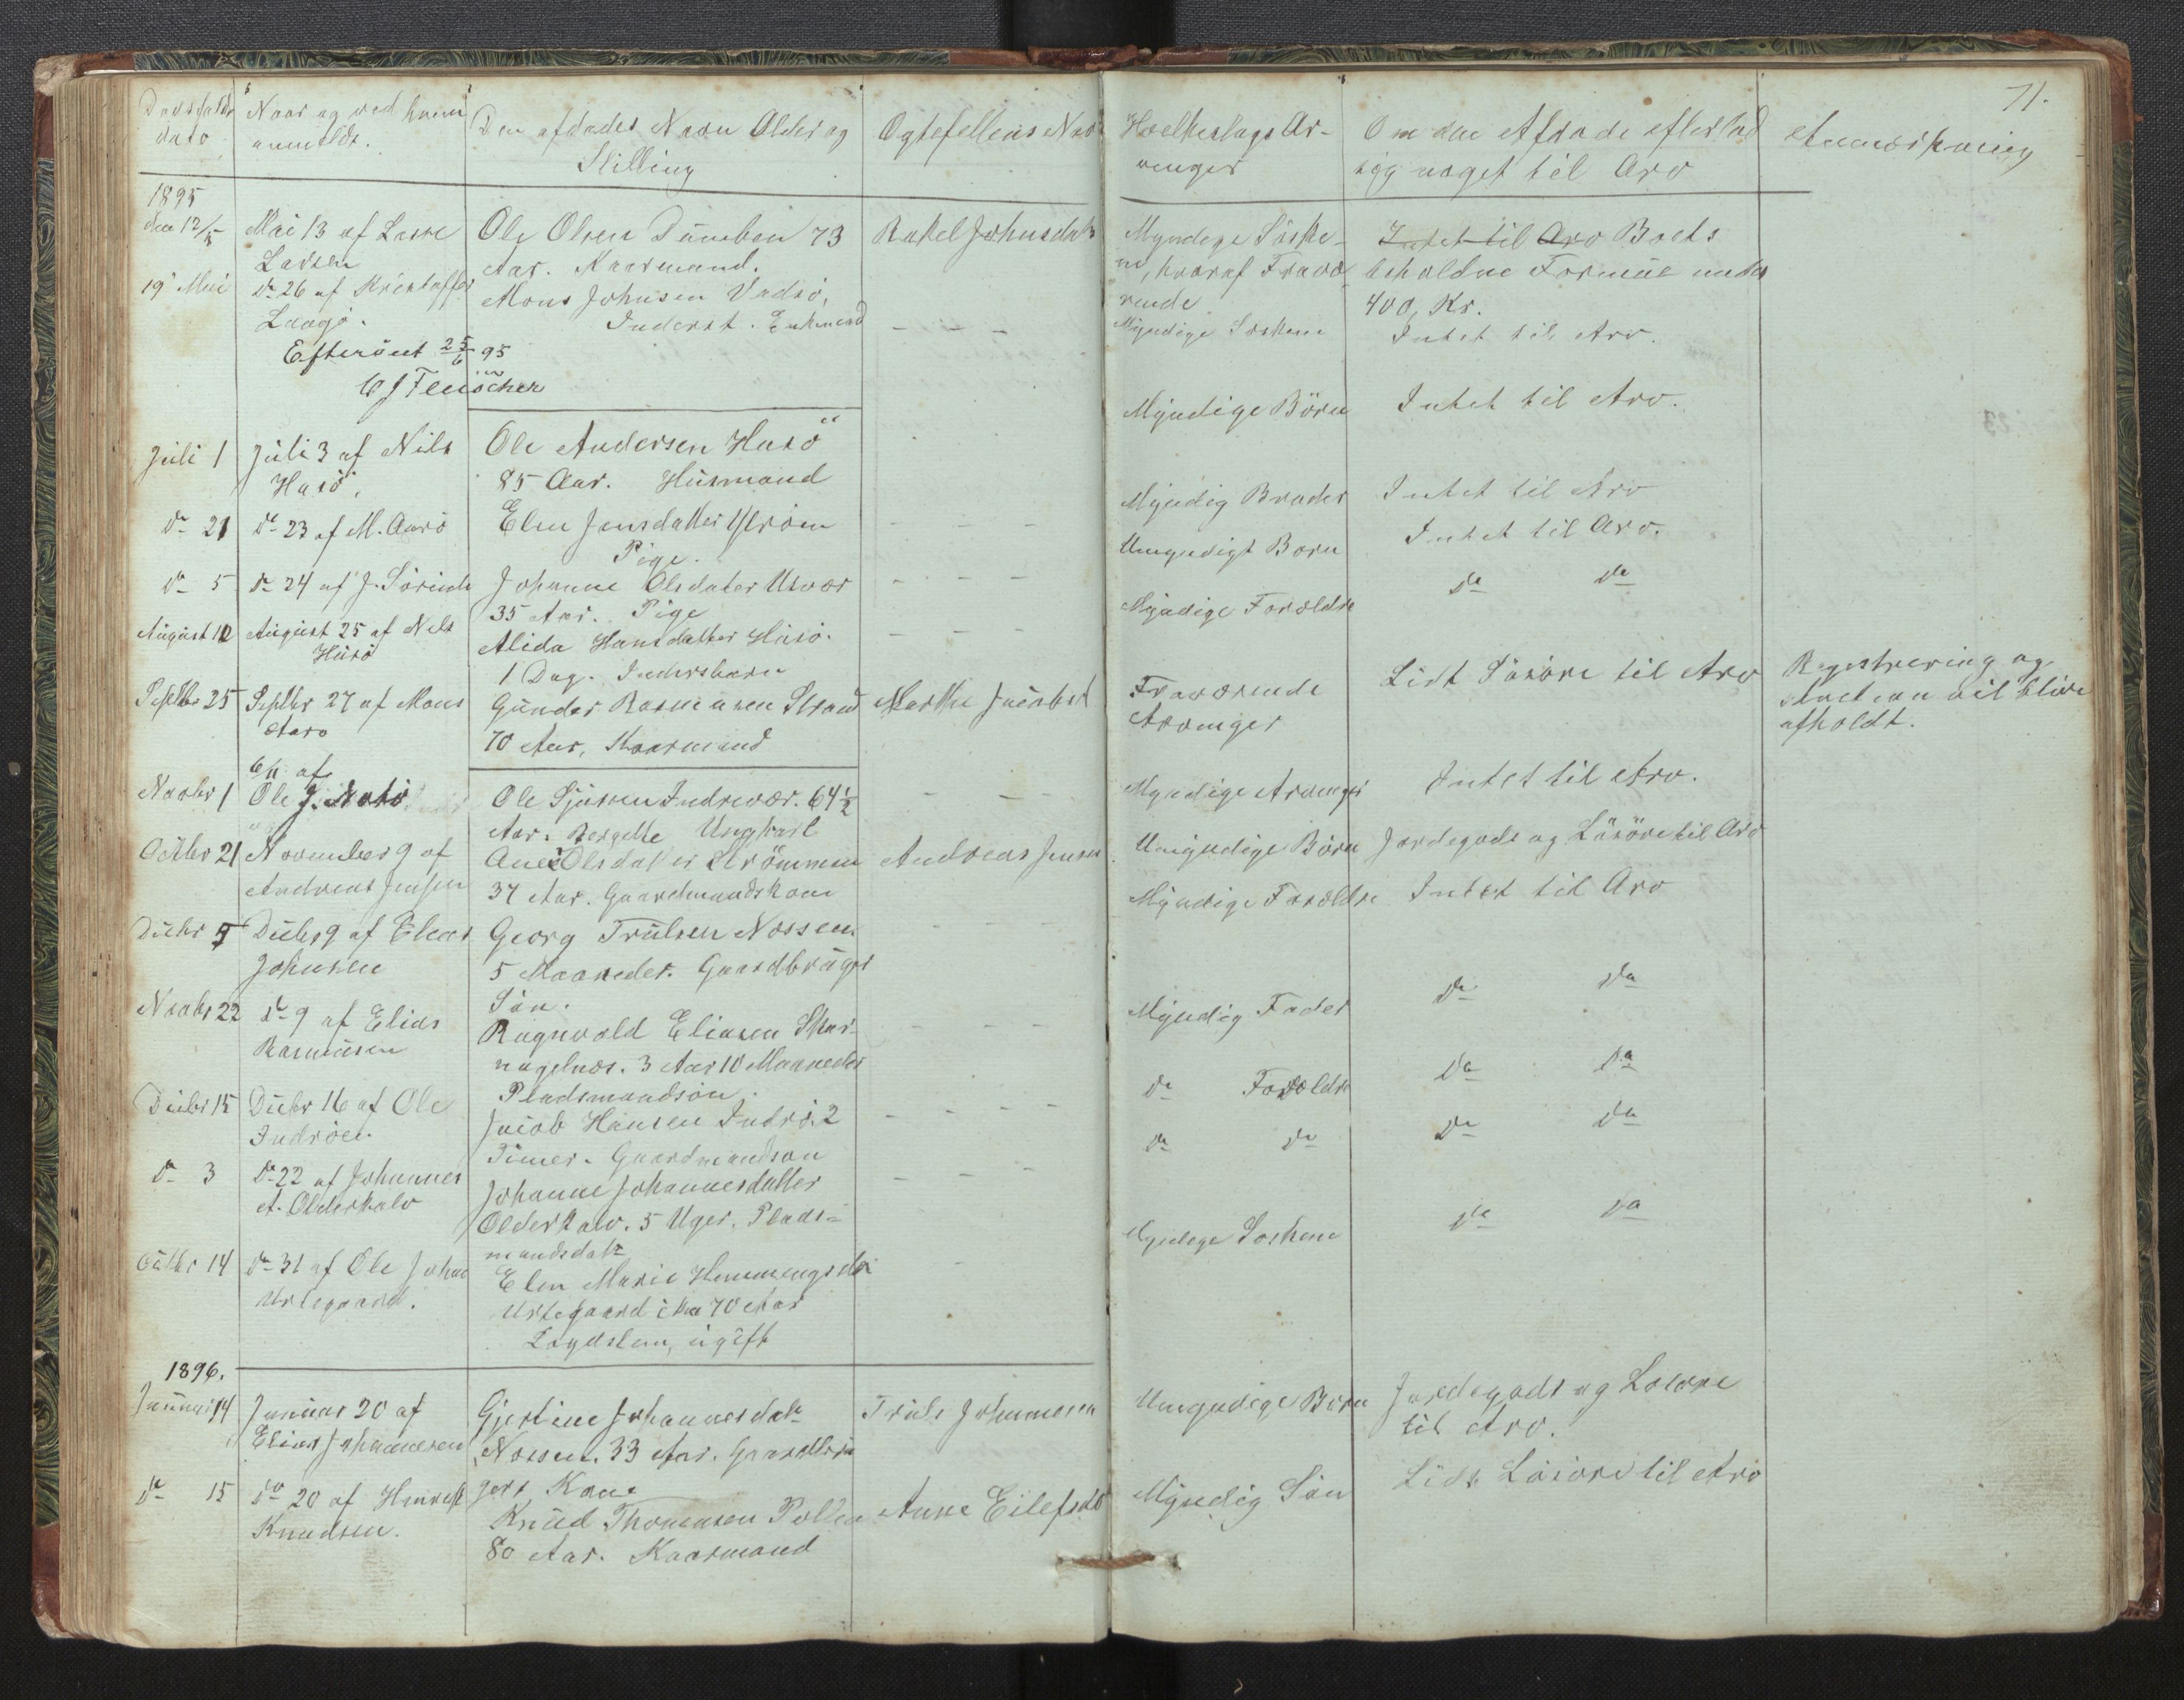 71.
Dødsfaldets dato
Naar og ved hvem anmeldt.
Den afdødes Navn Alder og Stilling
Ægtefellens Navn
Hvelkeslags Ar-
vinger
Om den Afdøde efterlod
sig noget til Arv
Anmærkning
1895
den 12/5
Mai 13 af Lasse
Larsen
Ole Olsen Dumben 73
Aar. Kaarmand.
Rakel Johnsdatr
Myndige Søske-
ne, hvoraf Fravæ-
rende
Intet til Arv Boets
beholdne Formue under
400, Kr.
19 Mai
do 26 af Kristoffer
Laagø.
Mons Johnsen Vadsø,
Inderst. Enkemand
- - -
Myndige Søskene
Intet til Arv.
Efterseet 25/6 95
Juli 1
Juli 3 af Nils
Husø.
Ole Andersen Husø
85 Aar. Husmand
Myndige Börn
Intet til Arv.
do 21
do 23 af M. Aarø
Elen Jensdatter Ystrøm
Pige.
- - -
Myndig Broder
Intet til Arv
do 5
do 24 af J. Sörinde
Johanne Olsdater Utvær
35 Aar. Pige
- - -
Umyndigt Barn
Intet til Arv.
August 10
August 25 af Nils
Husø
Alida Hansdatter Husø.
1 Dag. Indersbarn
- - -
Myndige Forældre
do do
Septbr 25
Septbr 27 af Mons
Aarø
Gunder Rasmusen Strand
70 Aar, Kaarmand
Marthe Jacobsd
Fraværende
Arvinger
Lidt Lösöre til Arv
Registrering og
auction vil blive
afholdt.
Novbr 1
6/11 af
Ole J. Notö
Ole Sjursen Indrevær. 64½
Aar. Ungkarl
- - -
Myndige Arvinger
Intet til Arv.
Octbr 21
November 9 af
Andreas Jensen
Ane Olsdatter Strömmen
37 Aar. Gaardmandskone
Andreas Jensen
Umyndige Börn
Jordegods og Lösöre til Arv
Decbr 5
Decbr 9 af Elias
Johnsen
Georg Trulsen Nossen
5 Maaneder. Gaardbruger
Sön.
- - -
Myndige Forældre
Intet til Arv
Novbr 22
do 9 af Elias
Rasmusen
Ragnvald Eliasen Skor-
nagelnes. 3 Aar 10 Maaneder
Pladsmandsön.
- - -
Myndig Fader
do do
Decbr 15
Decbr 16 af Ole
Indröen
Jacob Hansen Indrö. 2
Timer. Gaardmandsøn
- - - -
do Forældre
do do
do 3
do 22 af Johannes
A. Olderkalv
Johanne Johannesdatter
Olderkalv. 5 Uger. Plads-
mandsdatr
- - -
do do
do do
Octbr 14
do 31 af Ole Johns
Urtegaard.
Elen Marie Hemmingsdr
Urtegaard cirka 70 Aar
Lægdslem, ugift
-
Myndege Søskene
do do
1896.
Januar 14
Januar 20 af
Elias Johannesen
Gjertine Johannesdatr
Nossen. 33 Aar. Gaardbru
gers Kone
Truls Johannesen
Umyndige Børn
Jordegods og Løsøre
til Arv.
do 15
do 20 af Henrik
Knudsen.
Knud Thomassen Pollen
80 Aar. Kaarmand
Anne Eilefsdr
Myndig Sön
Lidt Lösöre til Arv